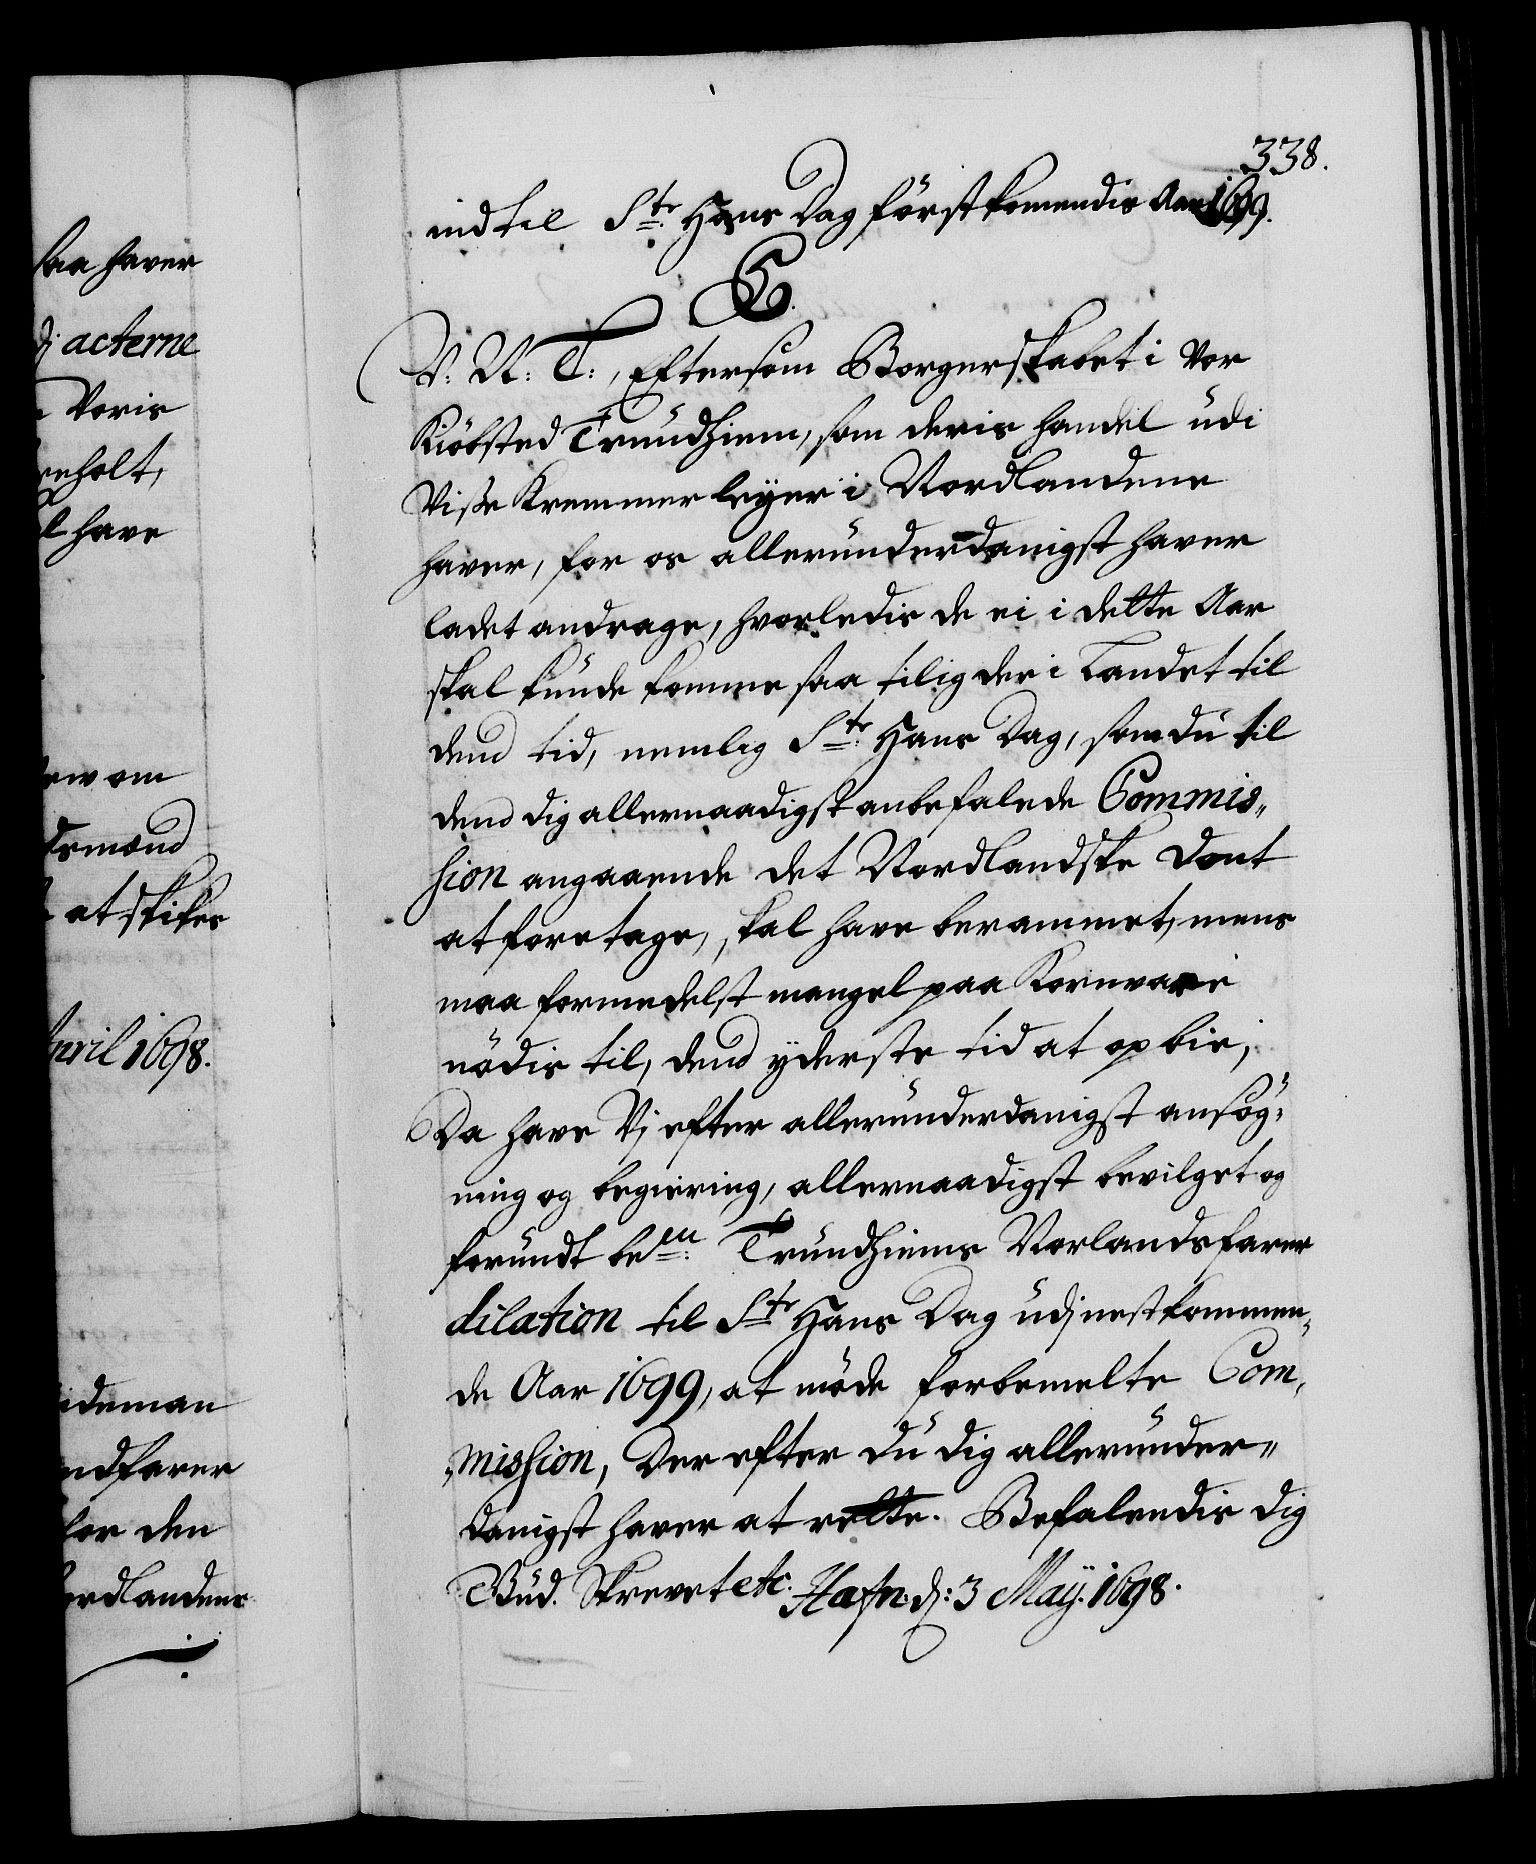 338.
ind til Str Hans Dag förstkomendis Aar 1699.
C5.
V. N. T:, Eftersom Borgerskabet i Vor
Kiöbsted Trundhiem, som deris handel udi
Visse Kremmerleyer i Nordlandene
haver, for os allerunderdanigst haver
ladet andrage, hvorledis de ei i dette Aar
skal kunde komme saa tilig der i Landet til
dend tid, nemlig Str Hans Dag, som du til
dend dig allernaadigst anbefalede Commis„
sion angaaende det Nordlandske Dont
at foretage, skal have berammet, mens
maa formedelst mangel paa Kornvare
nödis til, dend yderste tid at opbie,
Da have Vi efter allerunderdanigst ansög„
ning og begiering, allernaadigst bevilget og
forundt bem: Trundhiems Norlandsfarer
dilation til Str Hans Dag udj nestkommen„
de Aar 1699, at möde forbemelte Com„
„mission, Der efter du dig allerunder„
danigst haver at rette. Befalendis dig
Gud. Skrevet etc. Hafn: d: 3 Maÿ. 1698.
saa haver
d: acterne
Voris
reholt,
l have
rew om
dsmænd
at skikes
April 1698.
ideman
ndfarer
for den
ordlandene